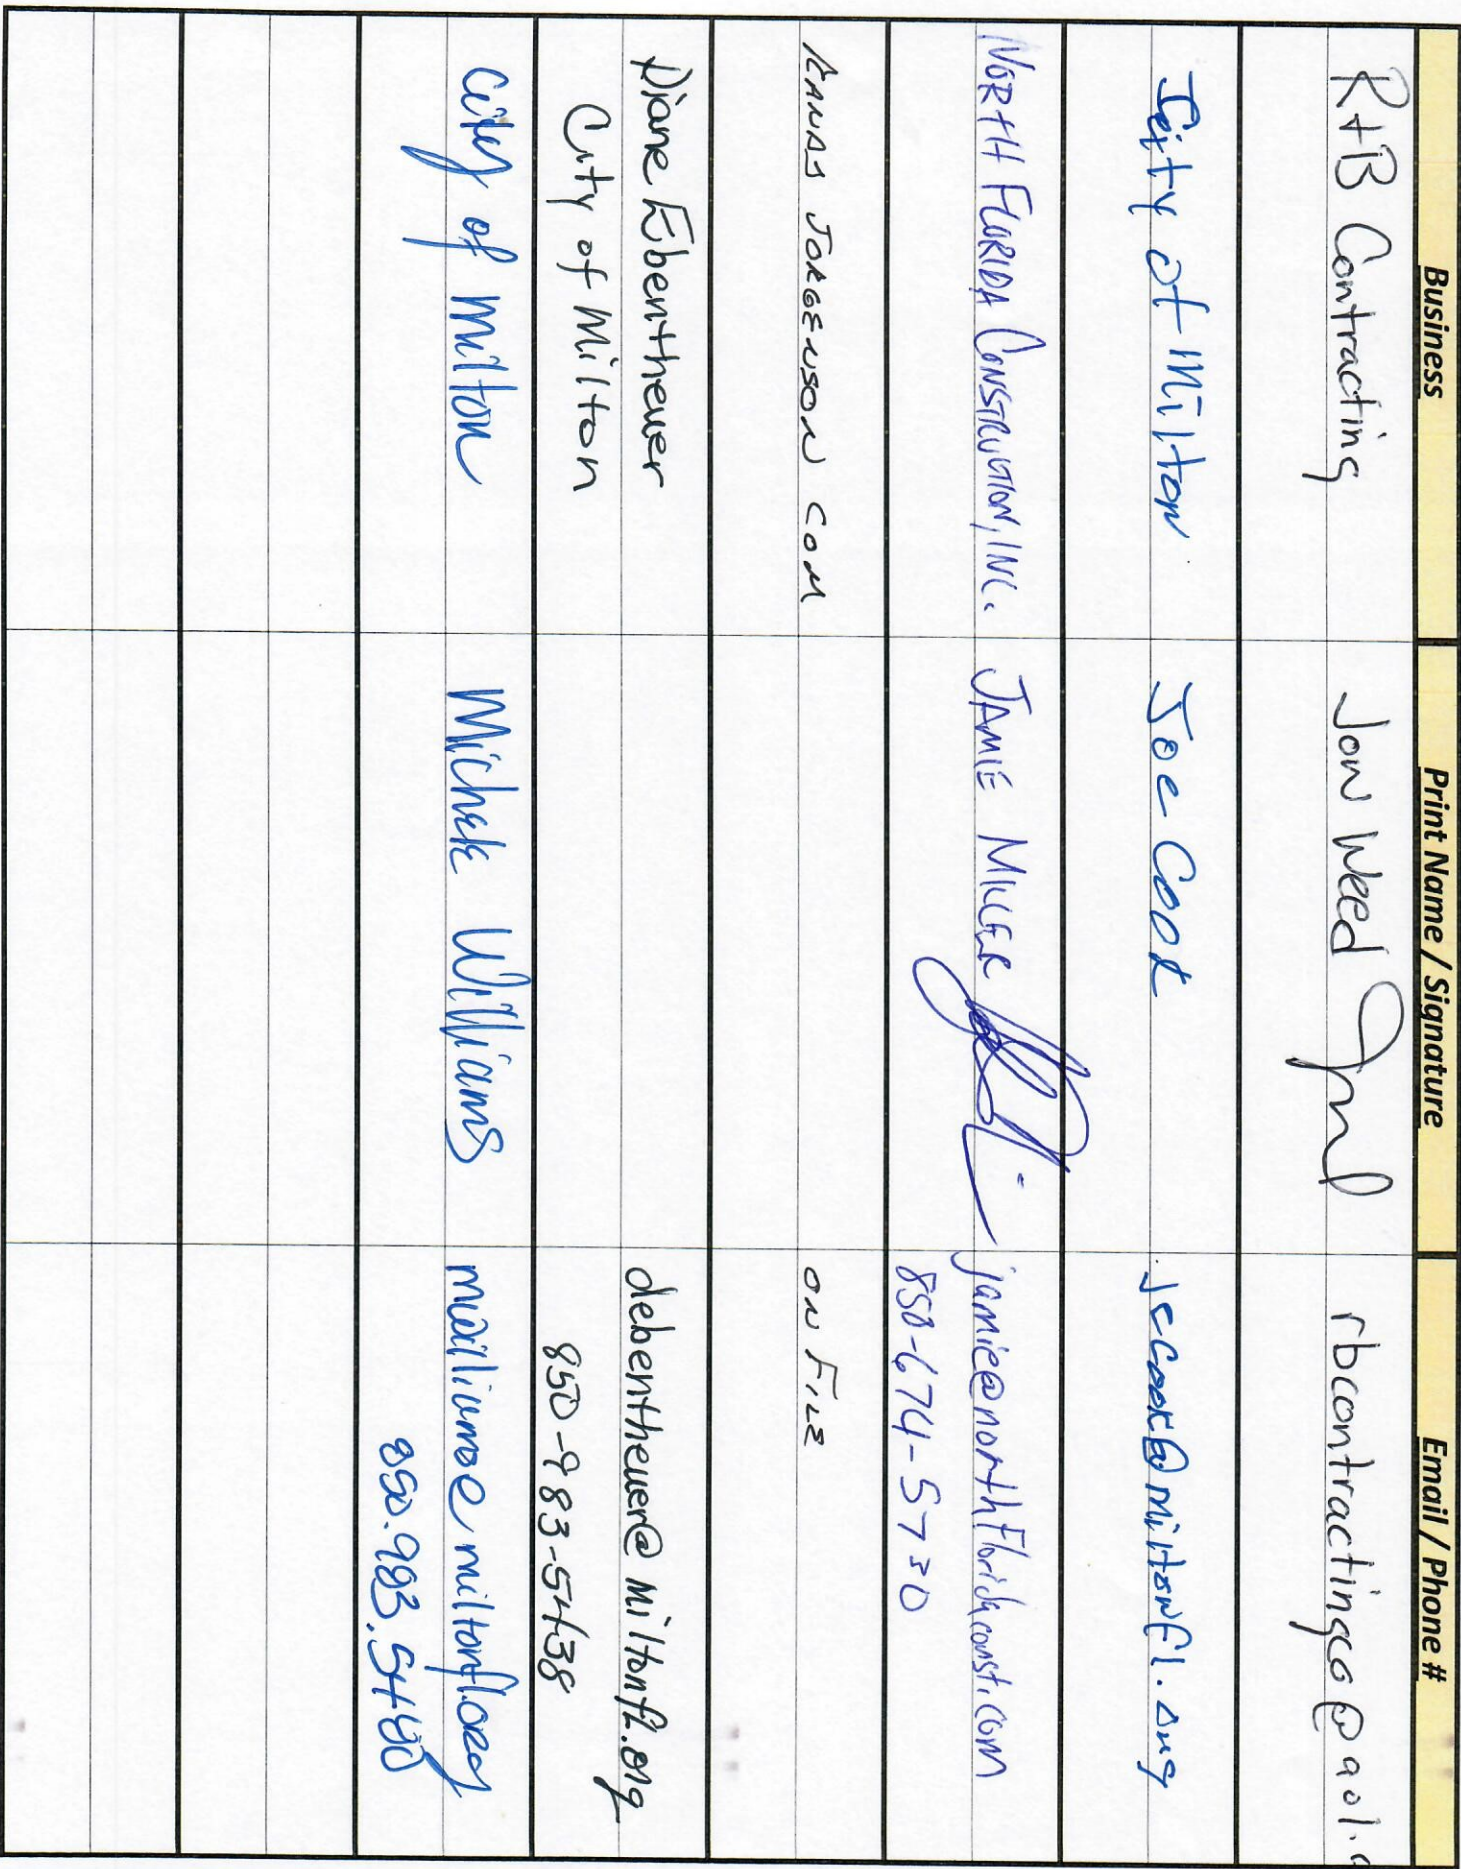 Business Print Name / Signature Email / Phone #
R+B Contracting Jon Weed rbcontractingco@aol.c
City of Milton Joe Cook jccook@miltonfl.org
NORTH FLORIDA CONSTRUCTION, INC. JAMIE MILLER jamie@northfloridaconst.com
850-674-5730
JORGENSON COM ON FILE
Diane Ebentheuer debentheuer@miltonfl.org
City of Milton 850-983-5438
City of Milton Michele Williams
850.983.5480